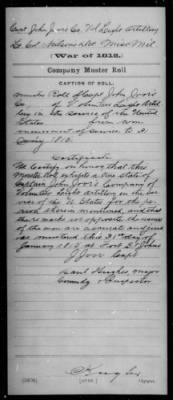 Capt John Joor's Co. Vol Light Artillery
Lt Col Nelson's Det Miss Mil
(War of 1812.)
Company Muster Roll
CAPTION OF ROLL.
Muster Roll of Capt John Joor's
Co of Volunteer Light Artil
lery in the Service of the United
States from com
mencement of Service to 31
January 1813.
Certificate
We Certify on honor that this
Muster Roll exhibits a true state of
Captain John Joor's Company of
Volunteer Light Artillery in the Ser
vice of the U States for the pe
riod therein mentioned, and that
the remarks set opposite the names
of the men are accurate and just
was mustered this 31st day of
January 1813 at Fort St Johns
J Joor Capt
Danl Hughes, Major
Inspector